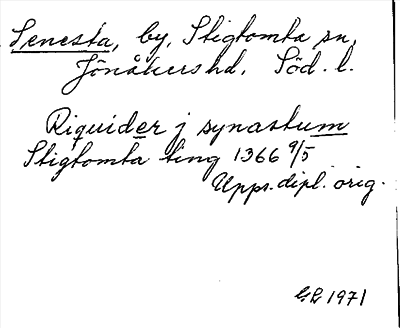 Senesta, by, Stigtomta sn,
Jönåkers hd, Söd. l.
Riquider j synastum
Stigtomta ting 1366 9/5
Upps. dipl. orig.
GL 1971